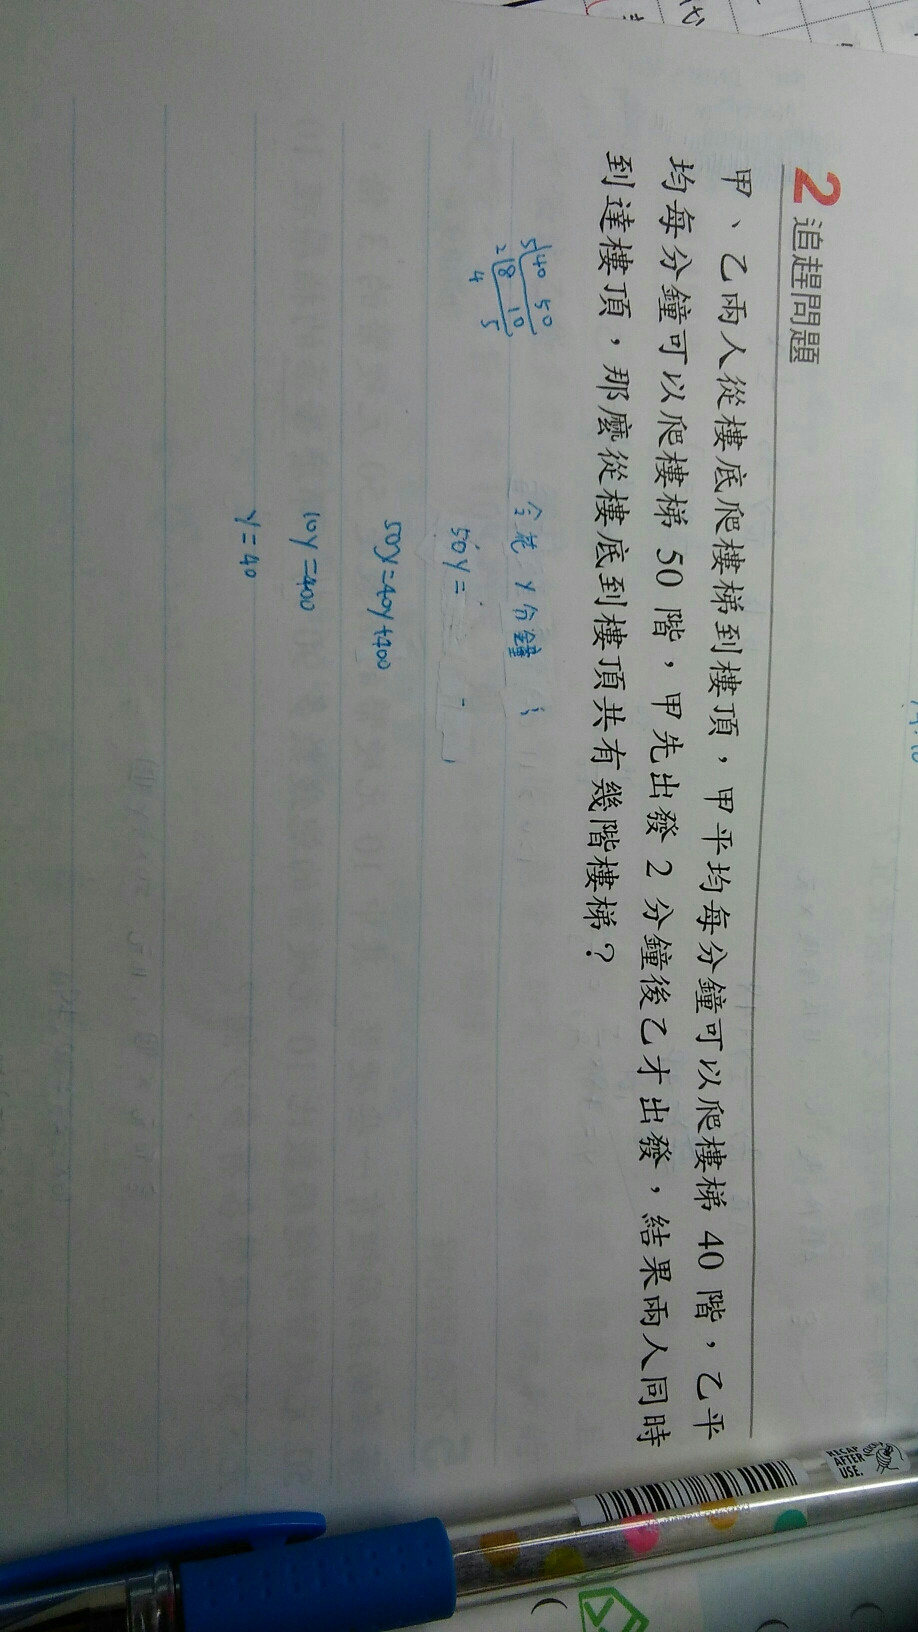 2 追趕問題
甲、乙兩人從樓底爬樓梯到樓頂，甲平均每分鐘可以爬樓梯 40 階，乙平
均每分鐘可以爬樓梯 50 階，甲先出發 2 分鐘後乙才出發，結果兩人同時
到達樓頂，那麼從樓底到樓頂共有幾階樓梯？
5 40 50
2 8 10
4 5
令花 y 分鐘
50y =
50y=40y+400
10y=400
y=40
AFTER
USE.